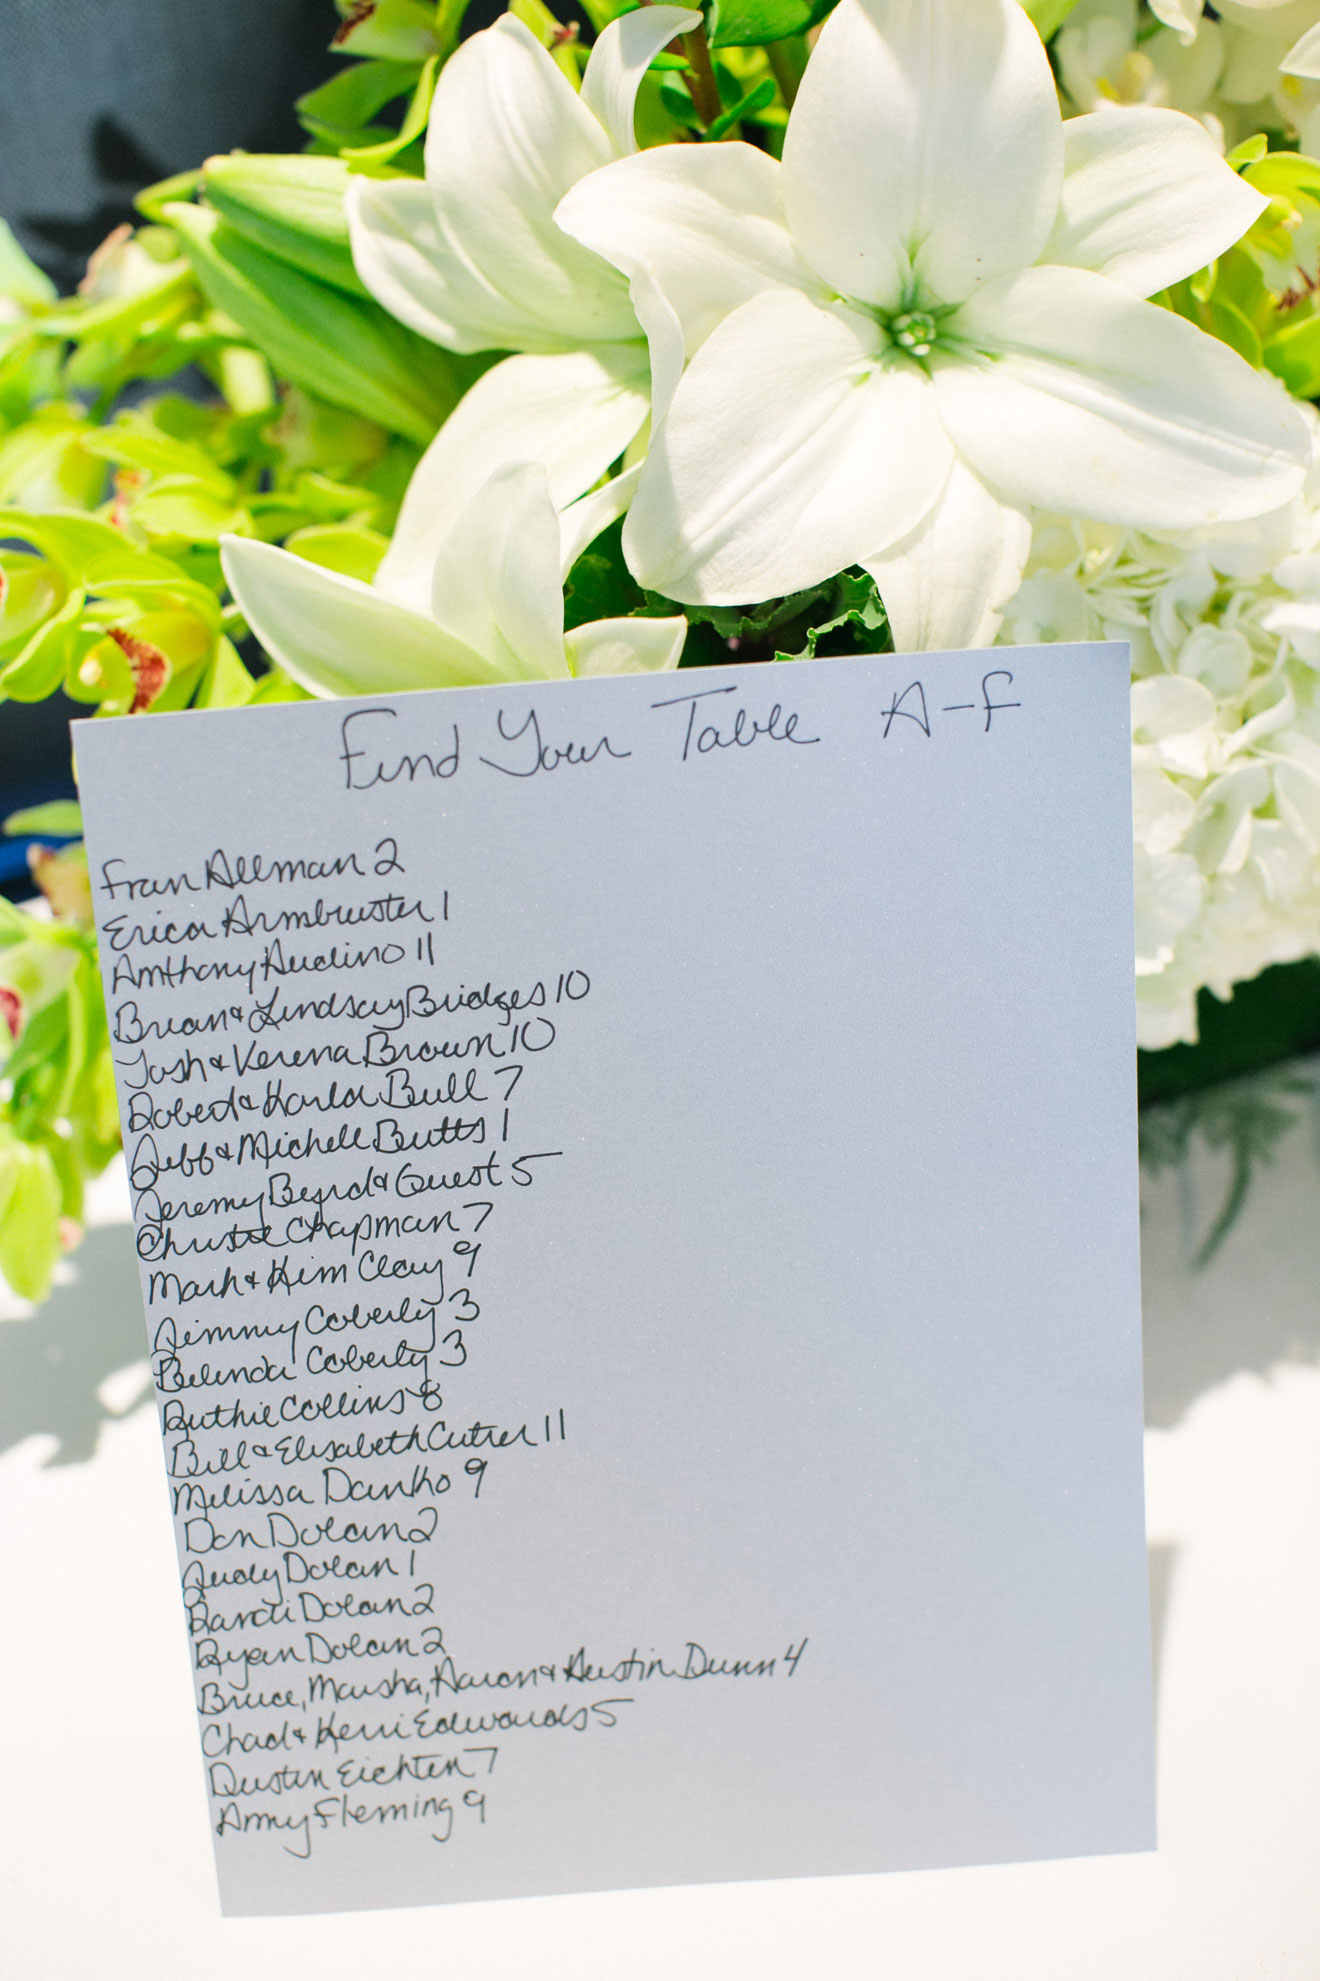 Find Your Table A-F
Fran Allman 2
Erica Armbruster 1
Anthony Audino 11
Brian & Lindsay Bridges 10
Josh & Verena Brown 10
Robert & Karla Bull 7
Jeff & Michell Butts 1
Jeremy Byrd & Guest 5
Christie Chapman 7
Mark & Kim Clay 9
Jimmy Coberly 3
Belinda Coberly 3
Ruthie Collins 8
Bill & Elisabeth Cutrer 11
Melissa Danko 9
Dan Dolan 2
Judy Dolan 1
Randi Dolan 2
Ryan Dolan 2
Bruce, Marsha, Aaron & Austin Dunn 4
Chad & Kerri Edwards 5
Dustin Eichten 7
Amy Fleming 9